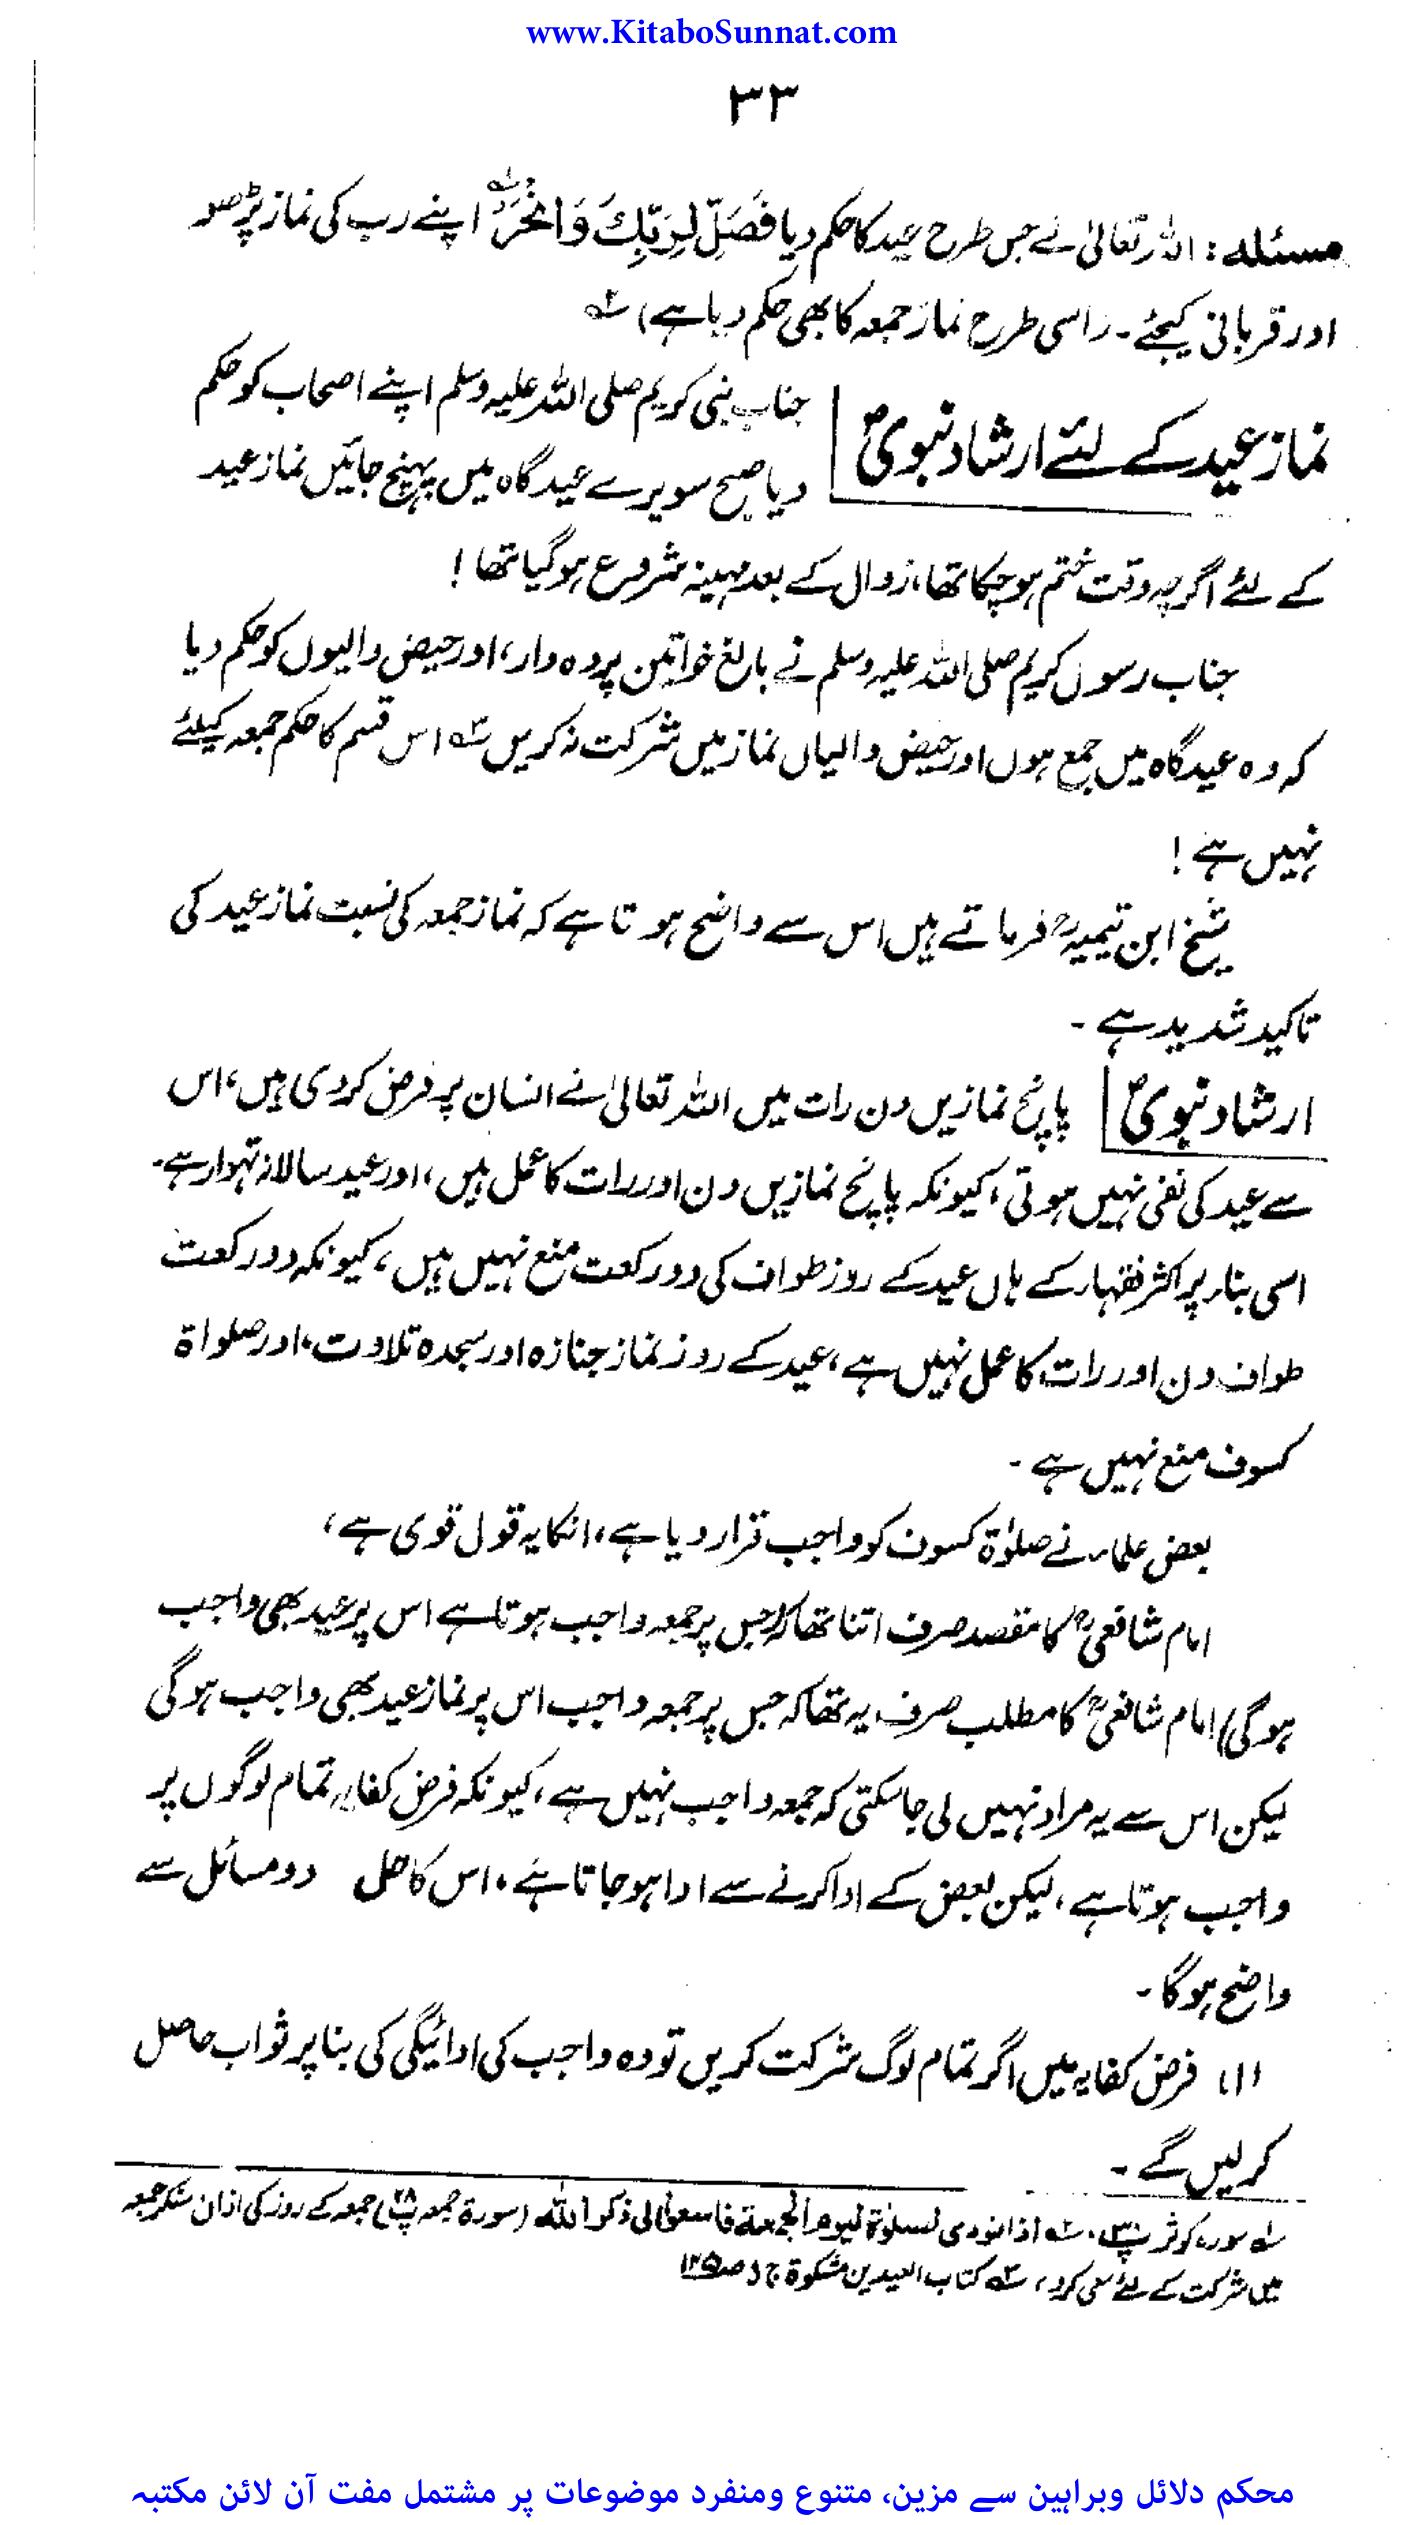 www.KitaboSunnat.com
۳۳
مسئلہ: اللہ تعالیٰ نے جس طرح عید کا حکم دیا فَصَلِّ لِرَبِّكَ وَانْحَرْ ؂۱ اپنے رب کی نماز پڑھو
اور قربانی کیجئے۔ (اسی طرح نماز جمعہ کا بھی حکم دیا ہے) ؂۲
نماز عید کے لئے ارشاد نبویؐ
جناب نبی کریم صلی اللہ علیہ وسلم اپنے اصحاب کو حکم
دیا صبح سویرے عیدگاہ میں پہنچ جائیں نماز عید
کے لئے اگرچہ وقت ختم ہوچکا تھا، زوال کے بعد مہینہ شروع ہوگیا تھا!
جناب رسول کریم صلی اللہ علیہ وسلم نے بالغ خواتین پردہ دار، اور حیض والیوں کو حکم دیا
کہ وہ عیدگاہ میں جمع ہوں اور حیض والیاں نماز میں شرکت نہ کریں ؂۳ اس قسم کا حکم جمعہ کیلئے
نہیں ہے!
شیخ ابن تیمیہؒ فرماتے ہیں اس سے واضح ہوتا ہے کہ نماز جمعہ کی نسبت نماز عید کی
تاکید شدید ہے۔
ارشاد نبویؐ
پانچ نمازیں دن رات میں اللہ تعالیٰ نے انسان پر فرض کردی ہیں، اس
سے عید کی نفی نہیں ہوتی، کیونکہ پانچ نمازیں دن اور رات کا عمل ہیں، اور عید سالانہ تہوار ہے۔
اسی بناء پر اکثر فقہاء کے ہاں عید کے روز طواف کی دو رکعت منع نہیں ہیں، کیونکہ دو رکعت
طواف دن اور رات کا عمل نہیں ہے، عید کے روز نماز جنازہ اور سجدہ تلاوت، اور صلواۃ
کسوف منع نہیں ہے۔
بعض علماء نے صلوٰۃ کسوف کو واجب قرار دیا ہے، انکا یہ قول قوی ہے،
امام شافعیؒ کا مقصد صرف اتنا تھا کہ (جس پر جمعہ واجب ہوتا ہے اس پر عید بھی واجب
ہوگی) امام شافعیؒ کا مطلب صرف یہ تھا کہ جس پر جمعہ واجب اس پر نماز عید بھی واجب ہوگی
لیکن اس سے یہ مراد نہیں لی جاسکتی کہ جمعہ واجب نہیں ہے، کیونکہ فرض کفایہ تمام لوگوں پر
واجب ہوتا ہے، لیکن بعض کے ادا کرنے سے ادا ہوجاتا ہے، اس کا حل دو مسائل سے
واضح ہوگا۔
(۱) فرض کفایہ میں اگر تمام لوگ شرکت کریں تو وہ واجب کی ادائیگی کی بنا پر ثواب حاصل
کرلیں گے۔
؂۱ سورہ کوثر پ۳۰، ؂۲ اذا نودی لصلوٰۃ لیوم الجمعۃ فاسعوا الی ذکر اللہ (سورۃ جمعہ پ۲۸) جمعہ کے روز کی اذان سنکر جمعہ
میں شرکت کے لئے سعی کرو، ؂۳ کتاب العیدین مشکوۃ ج۱ ص۱۲۵
محکم دلائل وبراہین سے مزین، متنوع ومنفرد موضوعات پر مشتمل مفت آن لائن مکتبہ